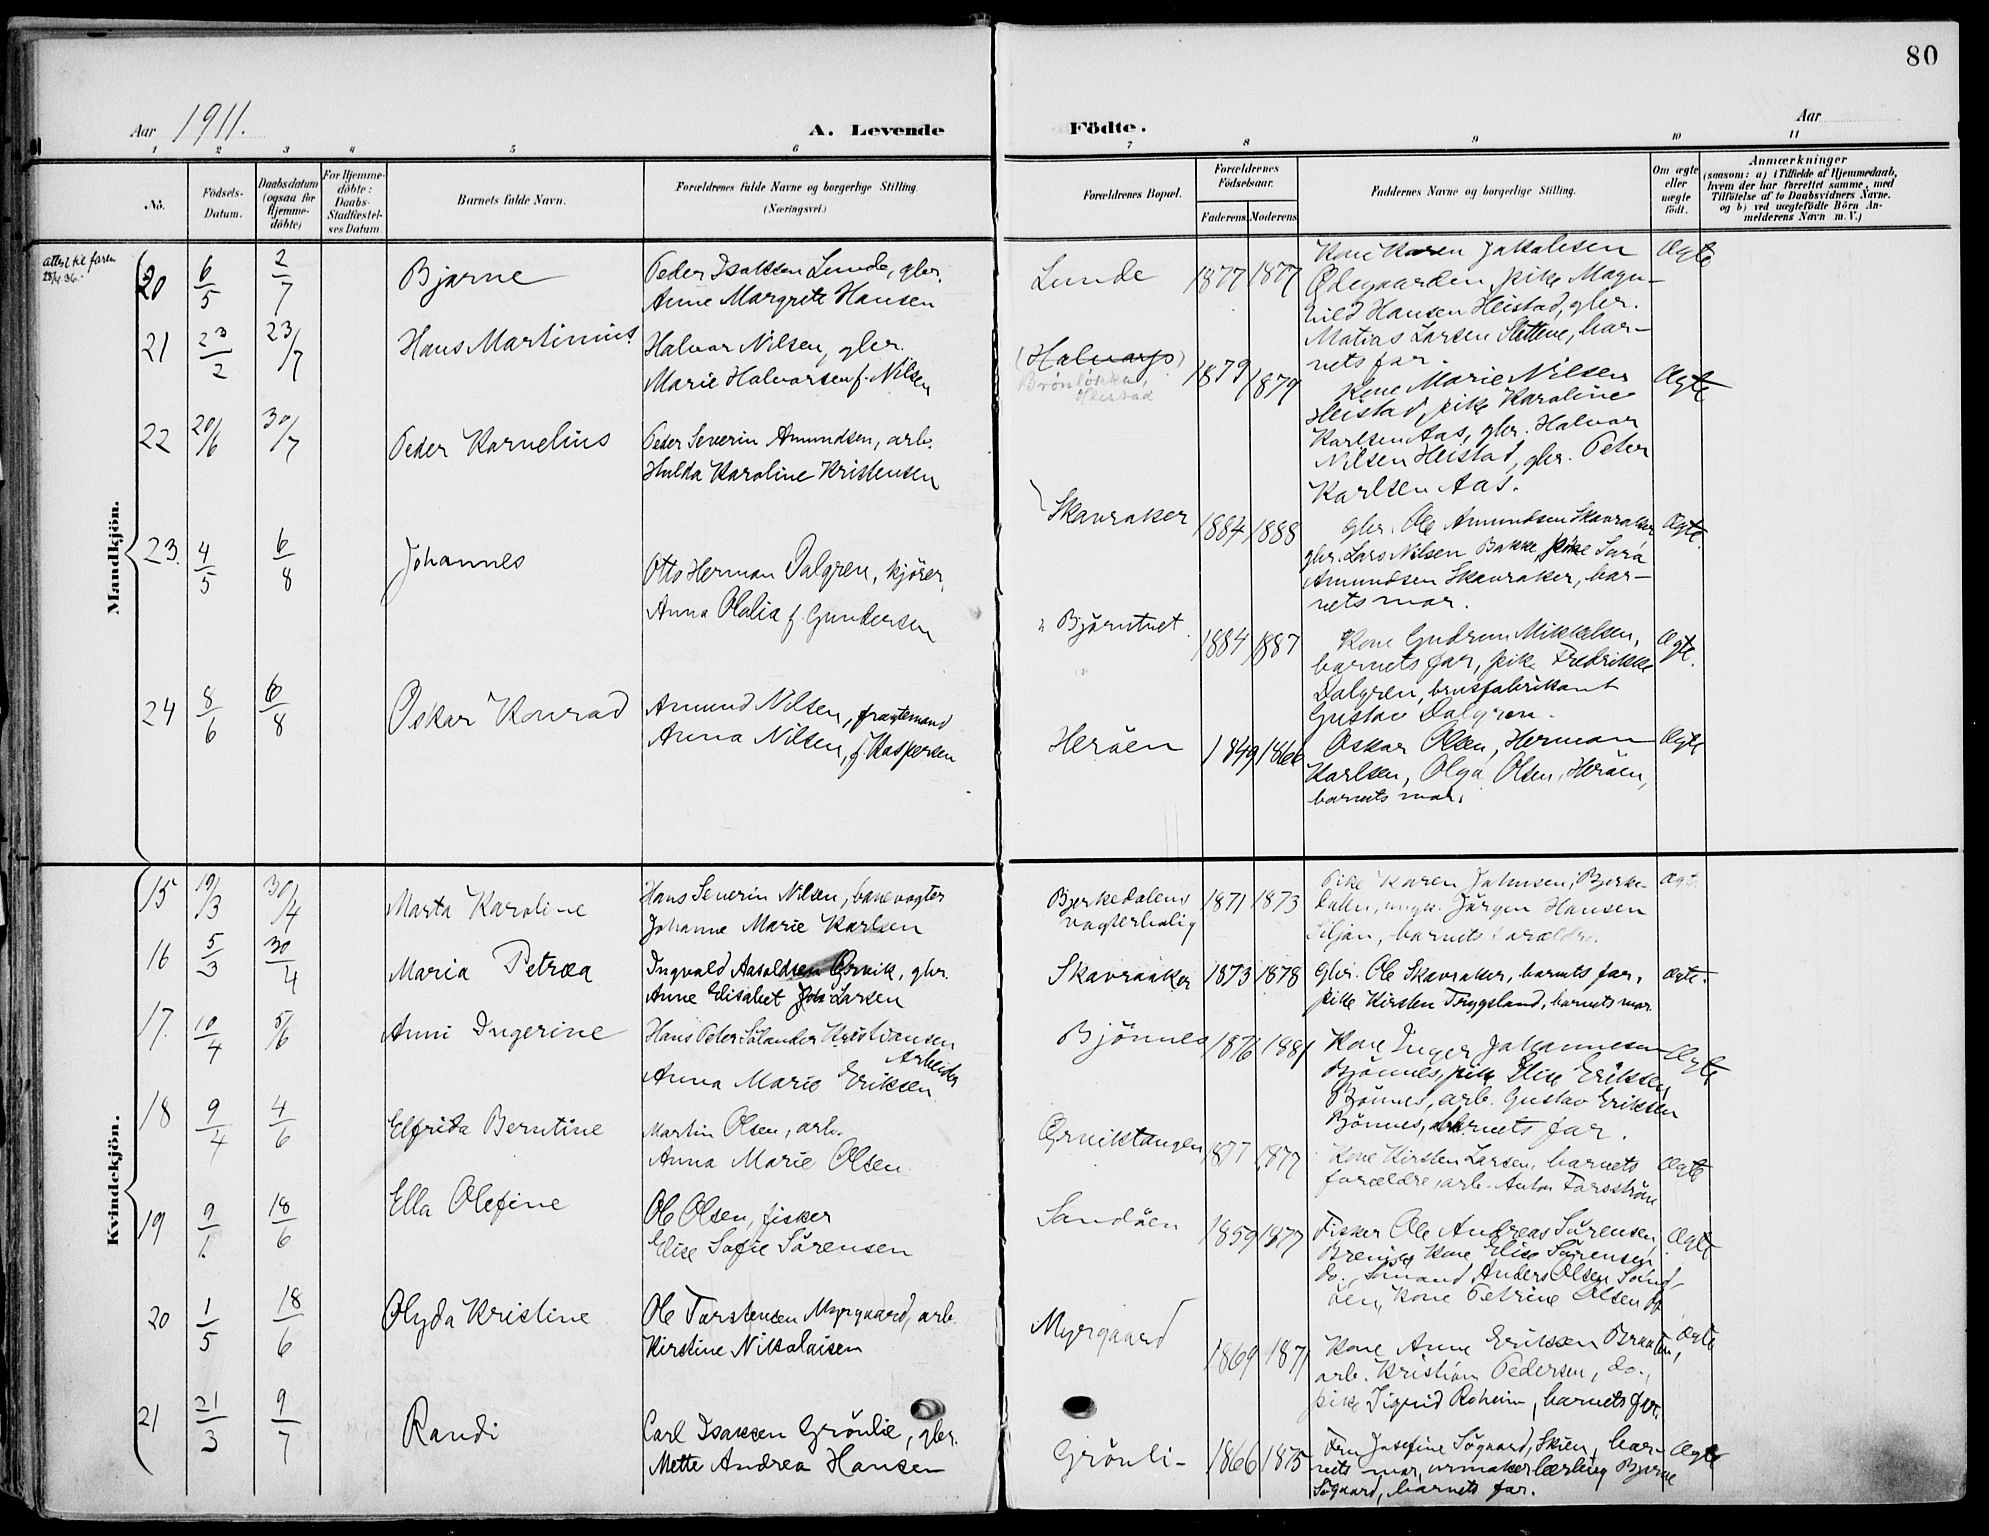 80
Aar 1911.
A. Levende
Födte.
Aar
1 2 3 4 5 6 7 8 9 10 11
No.
Födsels-Datum.
Daabsdatum (ogsaa for Hjemme-döbte)
For Hjemme-döbte: Daabs-Stadfæstel-ses Datum.
Barnets fulde Navn.
Forældrenes fulde Navne og borgerlige Stilling.
(Næringsvei.)
Forældrenes Bopæl.
Forældrenes Födselsaar.
Faderens Moderens
Faddernes Navne og borgerlige Stilling.
Om ægte eller uægte födt.
Anmærkninger
(saasom: a) i Tilfælde af Hjemmedaab,
hvem der har forrettet samme, med
Tilföielse af to Daabsvidners Navne.
og b) ved uægtefödte Börn An-
melderens Navn m. V.)
Mandkjön.
attest til faren
20 6/5 2/7 Bjarne
Peder Isaksen Lunde, gbr.
Anne Margrete Hansen
Lunde 1877 1877
Kone Karen Jakobsen
Ödegaarden, pike Magn-
hild Hansen Heistad, gbr.
Matias Larsen Slottene, bar-
nets far.
Ægte
21 23/2 23/7 Hans Martinius
Halvor Nilsen, gbr.
Marie Halvorsen f. Nilsen
(Halvarp)
Heistad
1879 1879
Kone Marie Nilsen
Heistad, pike Karoline
Karlsen Aas, gbr. Halvor
Nilsen Heistad, gbr. Peter
Karlsen Aas.
Ægte
22 20/6 30/7 Peder Kornelius
Peder Severin Amundsen, arb.
Hulda Karoline Kristensen
Skavraker 1884 1888
gbr. Ole Amundsen Skavraker
gbr. Lars Nilsen Bakke, pike Sara
Amundsen Skavraker, bar-
nets mor.
Ægte.
23. 4/5 6/8 Johannes
Otto Herman Dalgren, kjörer,
Anna Olalia f. Gundersen
Björntvet 1884 1887
Kone Gudrun Mikkelsen,
barnets far, pike Fredrikke
Dalgren, brusfabrikant
Gustav Dalgren.
Ægte.
24 8/6 6/8 Oskar Konrad
Amund Nilsen, fragtemand
Anna Nilsen, f. Kaspersen
Heröen 1849 1866
Oskar Olsen, Herman
Karlsen, Olga Olsen, Heröen,
barnets mor.
Ægte
Kvindekjön.
15 19/3 30/4 Marta Karoline
Hans Severin Nilsen, banevogter
Johanne Marie Karlsen
Bjerkedalens
vogterbolig
1871 1873
Pike Karen Johnsen, Bjerke-
dalen, ungk. Jörgen Hansen
Siljan, barnets forældre.
Ægt.
16 5/3 30/4 Maria Petrea
Ingvald Aasoldsen Örvik, gbr.
Anne Elisabet Larsen
Skavraaker 1873 1878
Gbr. Ole Skavraker, barnets far,
pike Kirsten Trygsland, barnets mor
Ægte.
17. 10/4 5/6 Anni Ingerine
Hans Peter Selander Kristiansen
Arbeider
Anna Marie Eriksen
Bjönnes 1876 1881
Kone Inger Johannesen
Bjönnes, pike Elise Eriksen
Bjönnes, arb. Gustav Eriksen
Bjönnes, barnets far.
Ægte
18 9/4 4/6 Elfrida Berntine
Martin Olsen, arb.
Anna Marie Olsen.
Örvikstangen 1877 1877
Kone Kirsten Larsen, barnets
forældre, arb. Anton Farsström
Ægte
19 9/1 18/6 Ella Olefine
Ole Olsen, fisker
Elise Sofie Sörensen
Sandöen 1859 1877
Fisker Ole Andreas Sörensen,
Brevig, Kone Elise Sörensen
do., Sömand Anders Olsen Sand-
öen, Kone Petrine Olsen do
Ægte
20 1/5 18/6 Olyda Kristine
Ole Torstensen Myrgaard, arb.
Kirstine Nikolaisen
Myrgaard 1869 1871
Kone Anne Eriksen Braaten,
arb. Kristian Pedersen, do.,
pike Sigrid Roheim, barnets far.
Ægte
21 21/3 9/7 Randi
Carl Isaksen Grönlie, gbr.
Mette Andrea Hansen
Grönli- 1866 1875
Fru Josefine Sögaard, Skien, bar-
nets mor, urmakerlærling Bjarne
Sögaard, barnets far.
Ægte